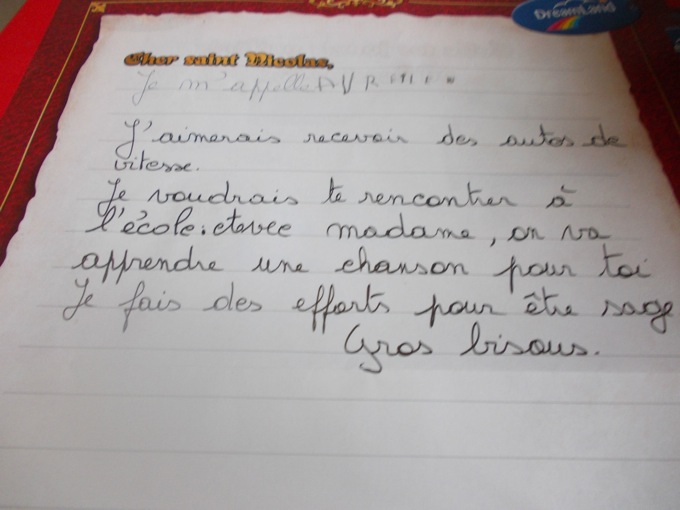 DreamLand
Cher saint Nicolas,
Je m'appelle
J'aimerais recevoir des autos de
vitesse.
Je voudrais te rencontrer à
l'école. et avec madame, on va
apprendre une chanson pour toi
Je fais des efforts pour être sage
Gros bisous.